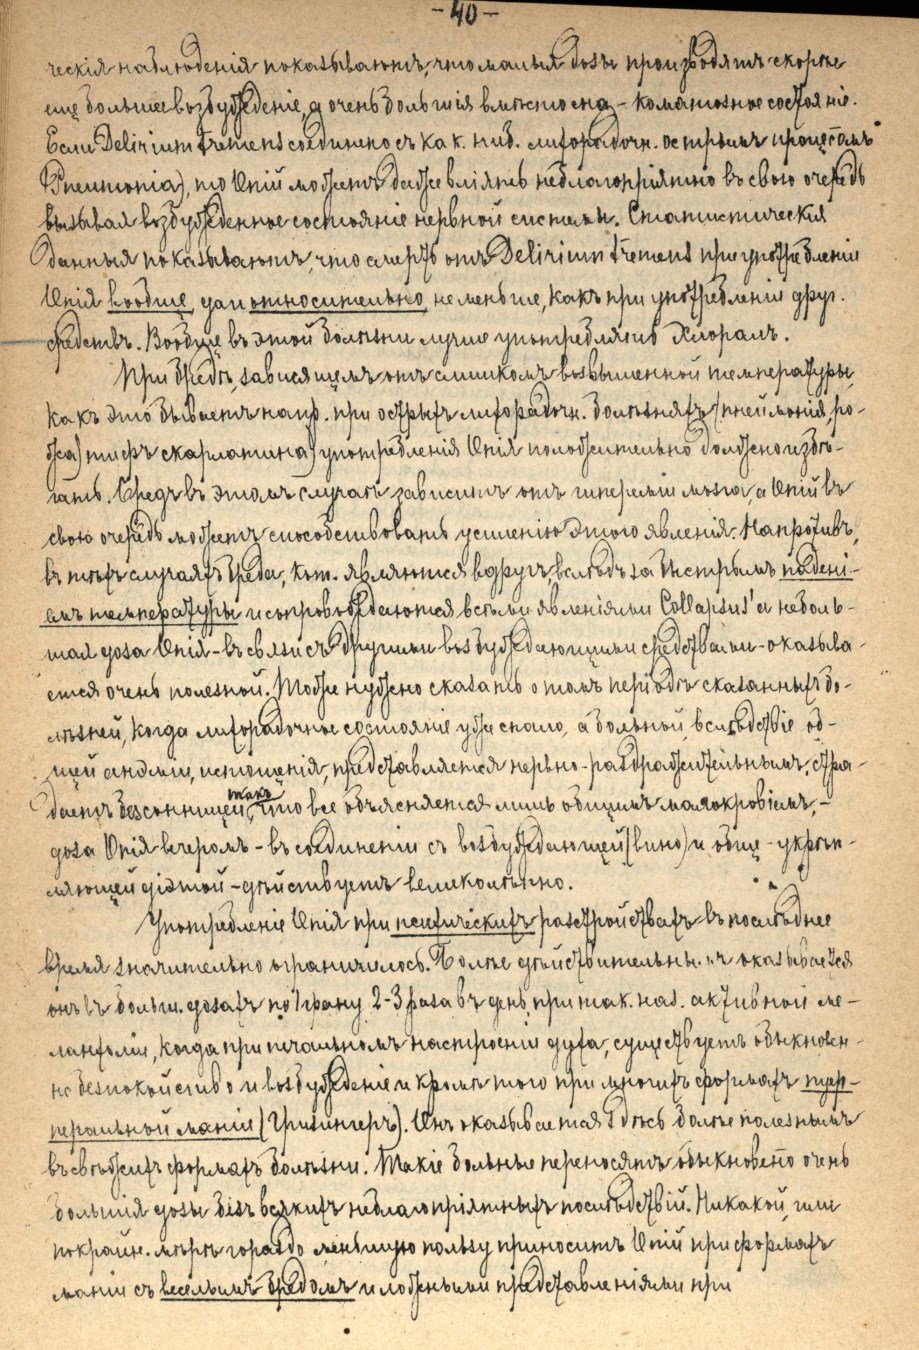 -40-
ческія наблюденія показываютъ, что малыя дозы производятъ скорѣе
еще большее возбужденіе, а очень большія вмѣсто сна - коматозное состояніе.
Если Delirium tremens соединено съ как. ниб. лихорадочн. острымъ процессомъ
(Pneumonia), то Опій можетъ даже вліять неблагопріятно въ свою очередь
вызывая возбужденное состояніе нервной системы. Статистическія
данныя показываютъ, что смерть отъ Delirium tremens при употребленіи
Опія вообще, дан относительно, не меньше, какъ при употребленіи друг.
средствъ. Вообще въ этой болѣзни лучше употреблять Хлоралъ.
При бредѣ, зависящемъ отъ слишкомъ возвышенной температуры,
какъ это бываетъ напр. при острыхъ лихорадочн. болѣзняхъ (пнеймонія, ро-
жа, тифъ скарлатина) употребленія Опія положительно должно избѣ-
гать. Бредъ въ этомъ случаѣ зависитъ отъ гипереміи мозга, а Опій въ
свою очередь можетъ способствовать усиленію этого явленія. Напротивъ,
въ тѣхъ случаяхъ бреда, кот. являются вдругъ, вслѣдъ за быстрымъ падені-
емъ температуры и сопровождаются всѣми явленіями Collapsus'а неболь-
шая доза Опія - въ связи съ другими возбуждающими средствами - оказыва-
ется очень полезной. Тоже нужно сказать о томъ періодѣ сказанныхъ бо-
лѣзней, когда лихорадочное состояніе уже спало, а больной, вслѣдствіе об-
щей анэміи, истощенія, представляется нервно-раздражительнымъ, стра-
даетъ безсонницей, такъ что все объясняется лишь общимъ малокровіемъ, -
доза Опія вечеромъ - въ соединеніи съ возбуждающей (вино) и обще-укрѣп-
ляющей діэтой - дѣйствуетъ великолѣпно.
Употребленіе Опія при психическихъ разстройствахъ въ послѣднее
время значительно ограничилось. Болѣе дѣйствительнымъ оказывается
онъ въ больш. дозахъ по 1 грану 2-3 раза въ день, при так. наз. активной ме-
ланхоліи, когда при печальномъ настроеніи духа, существуетъ обыкновен-
но безпокойство и возбужденіе и кромѣ того при многихъ формахъ пуэр-
перальной маніи (Гризингеръ). Онъ оказывается здѣсь болѣе полезнымъ
въ свѣжихъ формахъ болѣзни. Такіе больные переносятъ обыкновенно очень
большія дозы безъ всякихъ неблагопріятныхъ послѣдствій. Никакой, или
покрайн. мѣрѣ гораздо меньшую пользу приноситъ Опій при формахъ
маніи съ веселымъ бредомъ и ложными представленіями при